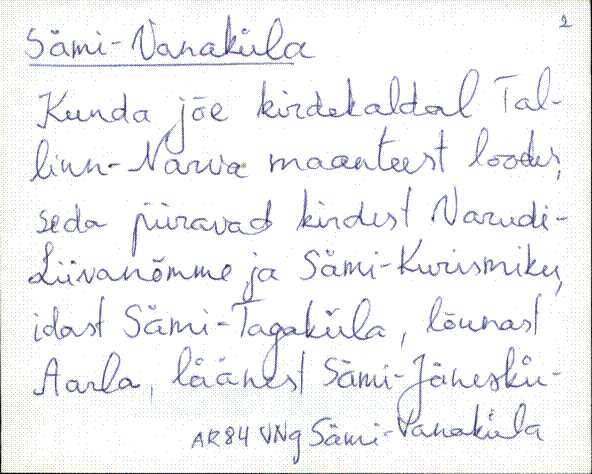 2
Sämi-Vanaküla
Kunda jõe kirdekaldal Tal-
linn-Narva maanteest loodes,
seda piiravad kirdest Varudi-
Liivanõmme ja Sämi-Kurismiku,
idast Sämi-Tagaküla, lõunast
Aarla, läänest Sämi-Jäneskü-
AR84 VNg Sämi-Vanaküla